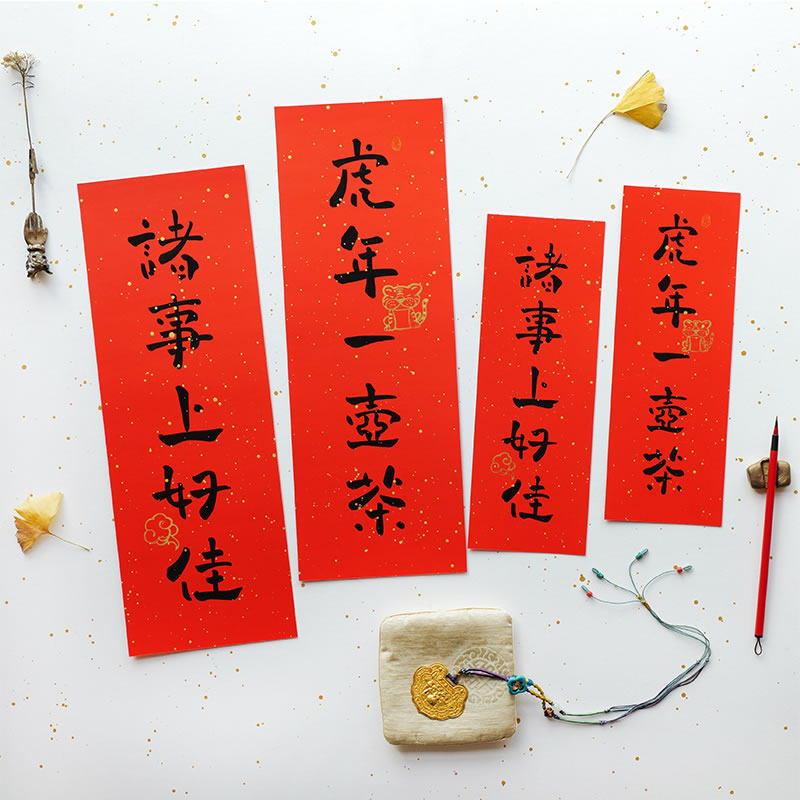 虎年一壺茶
諸事上好佳
虎年一壺茶
諸事上好佳